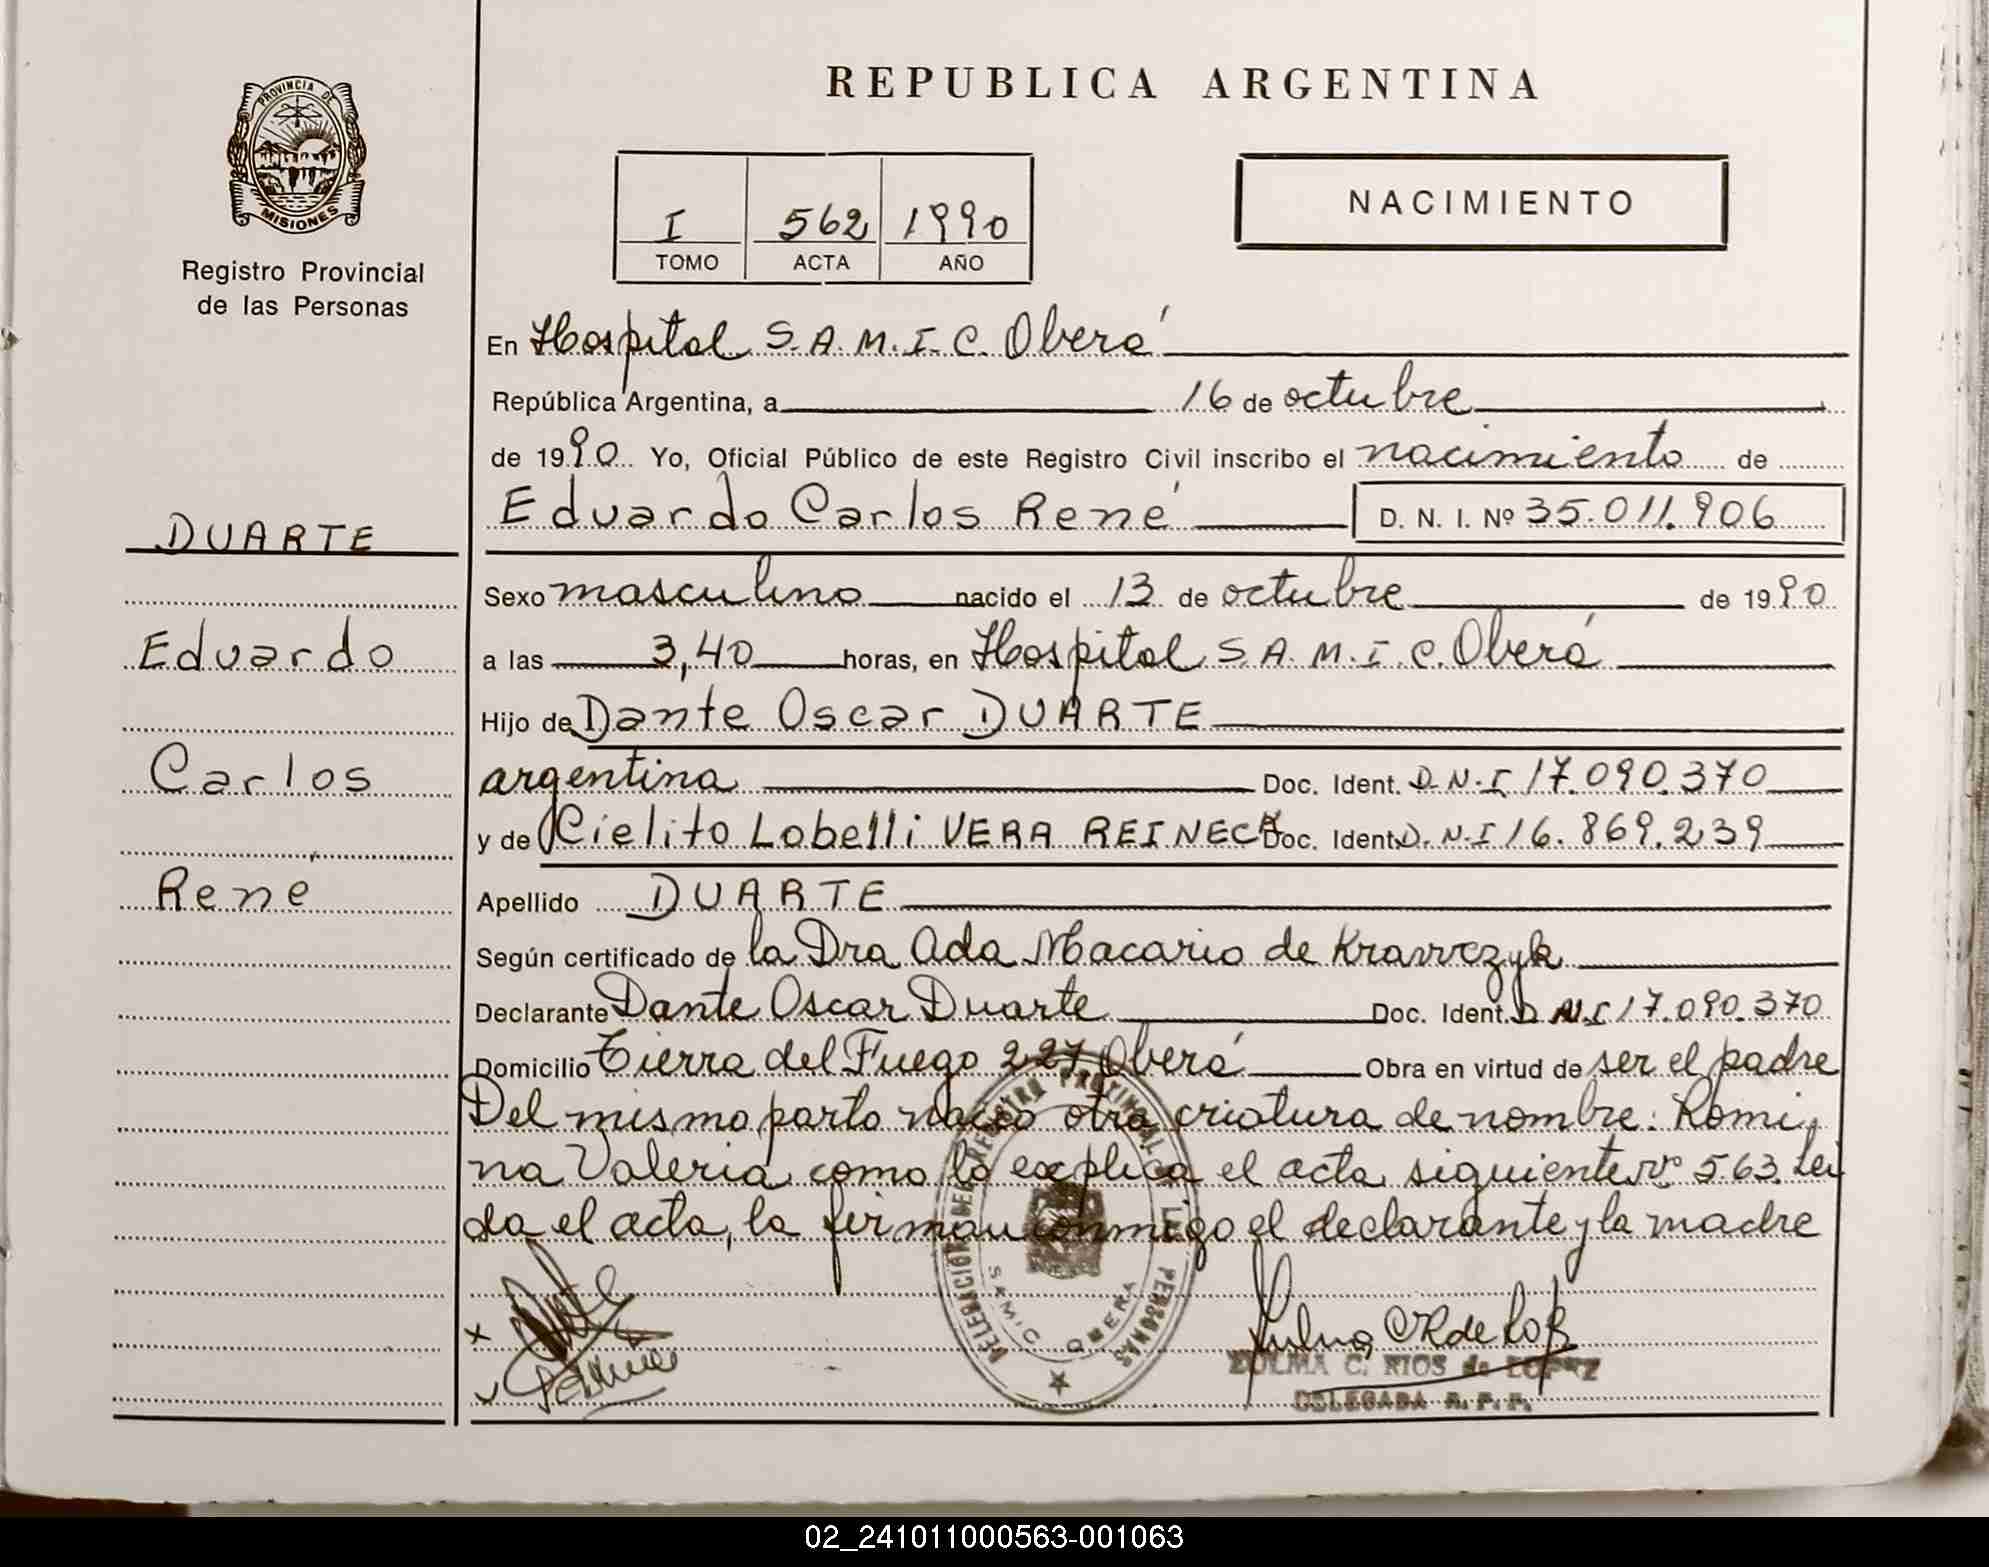 REPUBLICA ARGENTINA
PROVINCIA DE
MISIONES
Registro Provincial
de las Personas
I 562 1990
TOMO ACTA AÑO
NACIMIENTO
En Hospital S.A.M.I.C. Oberá
República Argentina, a 16 de octubre
de 1990 Yo, Oficial Público de este Registro Civil inscribo el nacimiento de
Eduardo Carlos René D. N. I. Nº 35.011.906
DUARTE
Sexo masculino nacido el 13 de octubre de 1990
Eduardo
a las 3,40 horas, en Hospital S.A.M.I.C. Oberá
Hijo de Dante Oscar DUARTE
Carlos
argentina Doc. Ident. D.N.I 17.090.370
y de Cielito Lobelli VERA REINECK Doc. Ident. D.N.I 16.869.239
René
Apellido DUARTE
Según certificado de la Dra Ada Macario de Krawczyk
Declarante Dante Oscar Duarte Doc. Ident. D.N.I 17.090.370
Domicilio Tierra del Fuego 227 Oberá Obra en virtud de ser el padre
Del mismo parto nació otra criatura de nombre: Romi
na Valeria como lo explica el acta siguiente nº 563. Lei
da el acta, la firman conmigo el declarante y la madre
DELEGACIÓN DEL REGISTRO PROVINCIAL DE LAS PERSONAS
SAMIC OBERA
ZULMA C. RIOS de LOPEZ
DELEGADA R. P. P.
02_241011000563-001063